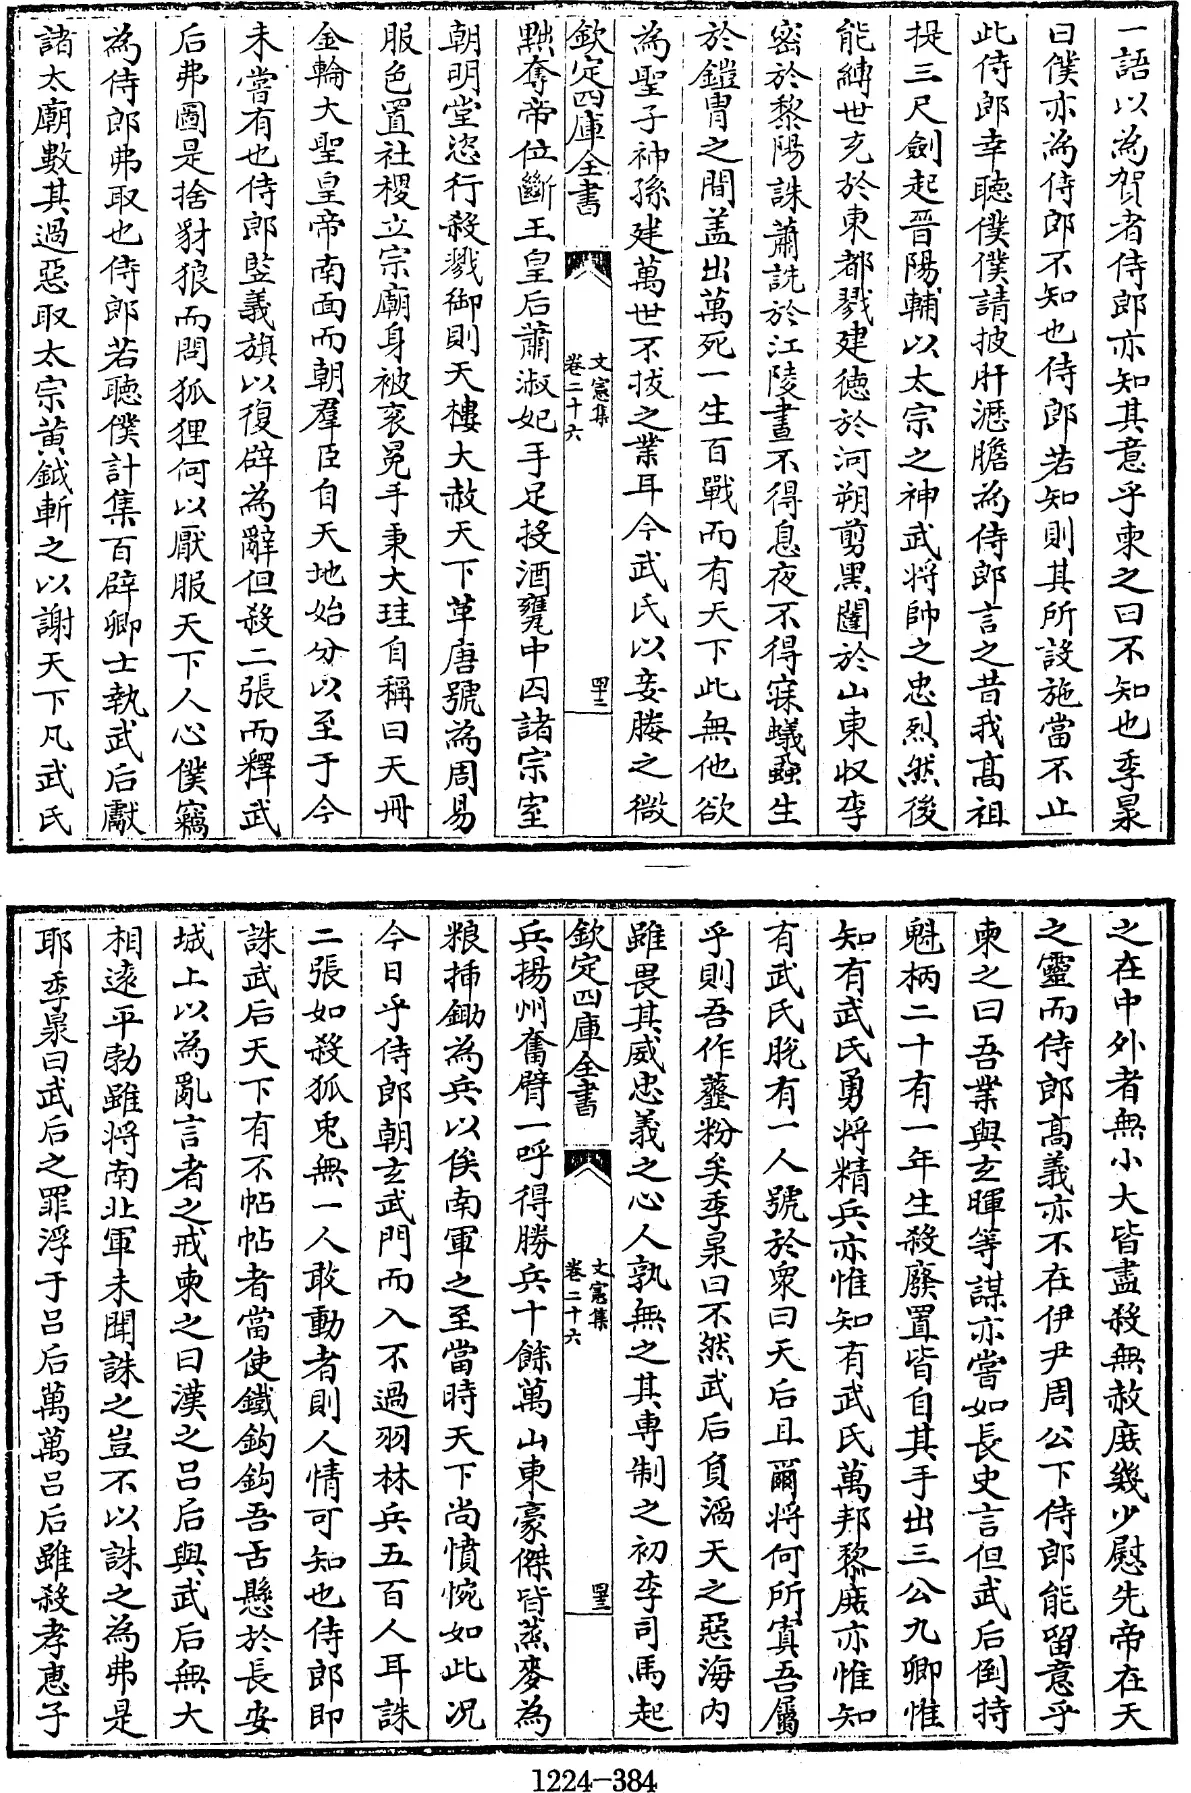 一語以為賀者侍郎亦知其意乎柬之曰不知也季㫤
曰僕亦為侍郎不知也侍郎若知則其所設施當不止
此侍郎幸聴僕僕請披肝瀝膽為侍郎言之昔我髙祖
提三尺劍起晉陽輔以太宗之神武将帥之忠烈然後
能縛世充於東都戮建徳於河朔剪黒闥於山東収李
密於黎陽誅蕭銑於江陵晝不得息夜不得寐蟣蝨生
於鎧胄之間盖出萬死一生百戰而有天下此無他欲
為聖子神孫建萬世不拔之業耳今武氏以妾媵之微
欽定四庫全書
文憲集
卷二十六
四十二
黜奪帝位斷王皇后蕭淑妃手足投酒甕中囚諸宗室
朝明堂恣行殺戮御則天樓大赦天下革唐號為周易
服色置社稷立宗廟身被衮冕手秉大珪自稱曰天冊
金輪大聖皇帝南面而朝羣臣自天地始分以至于今
未嘗有也侍郎䜿義旗以復辟為辭但殺二張而釋武
后弗圖是捨豺狼而問狐狸何以厭服天下人心僕竊
為侍郎弗取也侍郎若聴僕計集百辟卿士執武后獻
諸太廟數其過惡取太宗黄鉞斬之以謝天下凡武氏
之在中外者無小大皆盡殺無赦庻幾少慰先帝在天
之靈而侍郎髙義亦不在伊尹周公下侍郎能留意乎
柬之曰吾業與玄暉等謀亦嘗如長史言但武后倒持
魁柄二十有一年生殺廢置皆自其手出三公九卿惟
知有武氏勇将精兵亦惟知有武氏萬邦黎庻亦惟知
有武氏脱有一人號於衆曰天后且爾将何所寘吾屬
乎則吾作虀粉矣季㫤曰不然武后負滔天之惡海内
雖畏其威忠義之心人孰無之其専制之初李司馬起
欽定四庫全書
文憲集
卷二十六
四十三
兵揚州奮臂一呼得勝兵十餘萬山東豪傑皆蒸麥為
粮挿鋤為兵以俟南軍之至當時天下尚憤惋如此况
今日乎侍郎朝玄武門而入不過羽林兵五百人耳誅
二張如殺狐兎無一人敢動者則人情可知也侍郎即
誅武后天下有不帖帖者當使鐵鈎鈎吾舌懸於長安
城上以為亂言者之戒柬之曰漢之吕后與武后無大
相逺平勃雖将南北軍未聞誅之豈不以誅之為弗是
耶季㫤曰武后之罪浮于吕后萬萬吕后雖殺孝恵子
1224-384